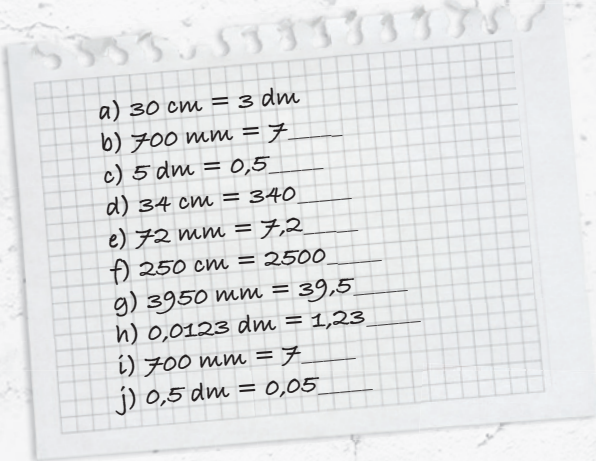 a) 30 cm = 3 dm
b) 700 mm = 7____
c) 5 dm = 0,5____
d) 34 cm = 340____
e) 72 mm = 7,2____
f) 250 cm = 2500____
g) 3950 mm = 39,5____
h) 0,0123 dm = 1,23____
i) 700 mm = 7____
j) 0,5 dm = 0,05____